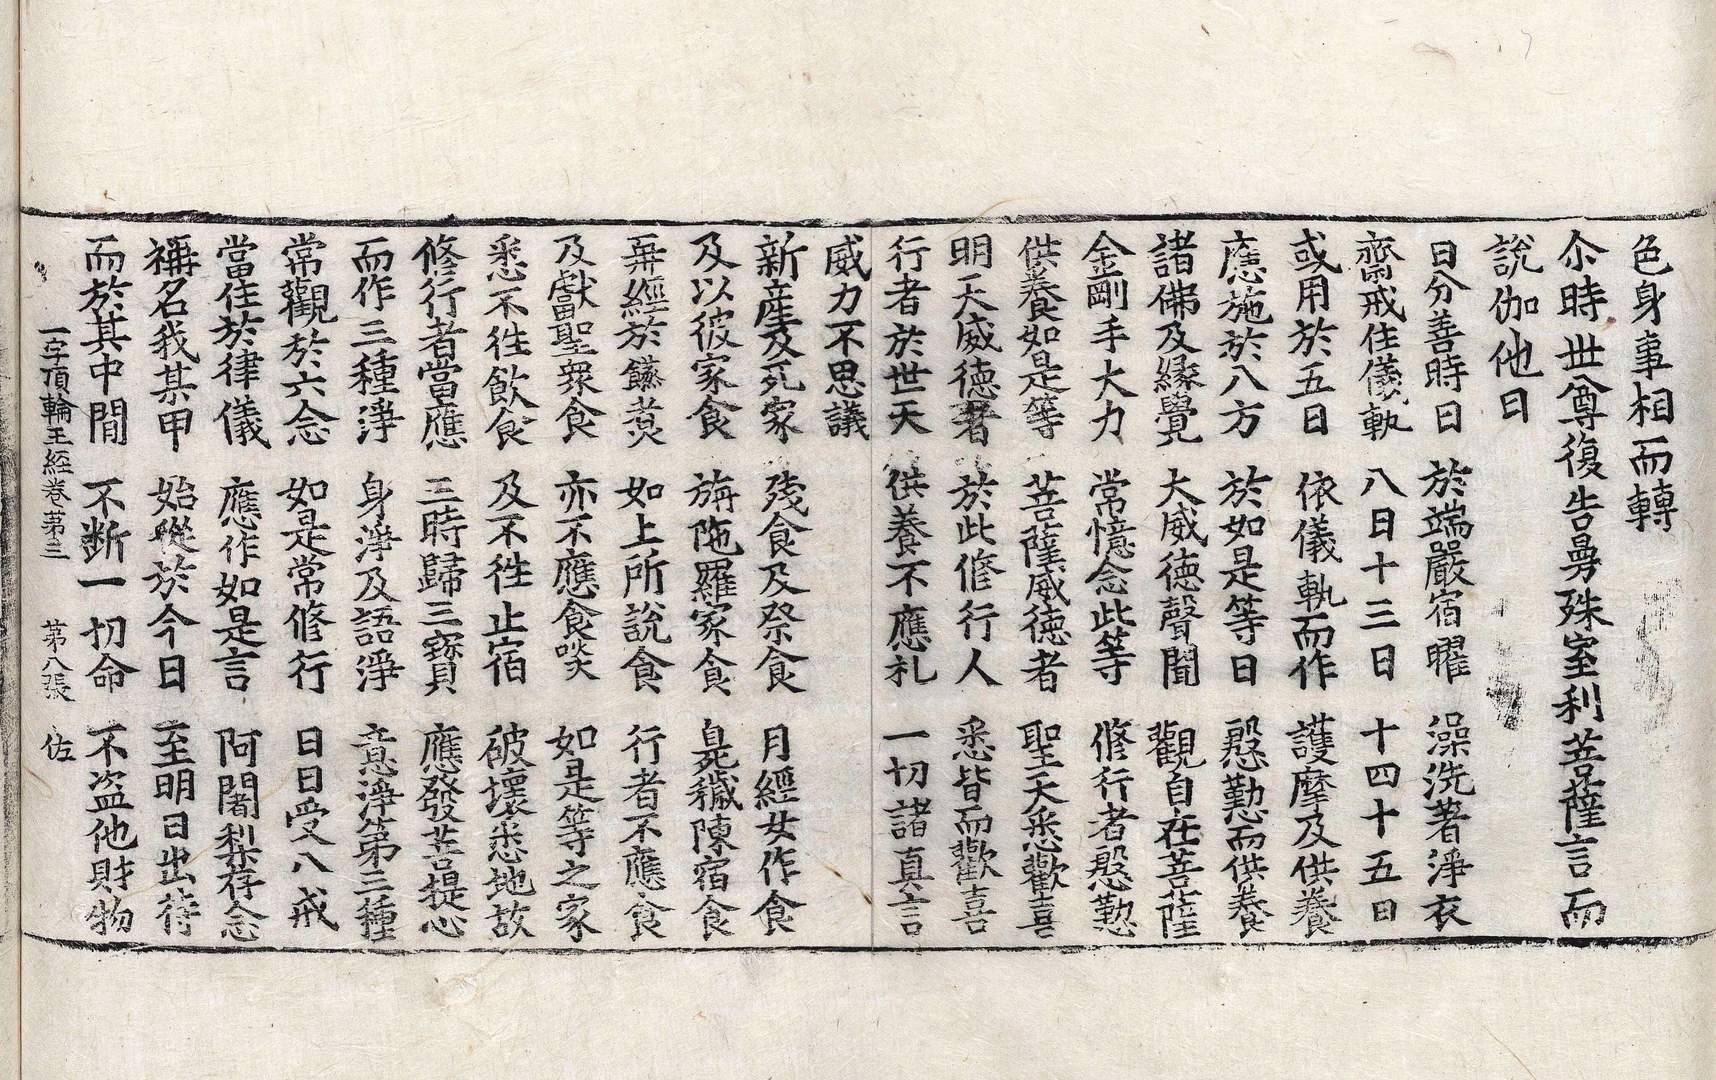 色身事相而轉
尒時世尊復告曼殊室利菩薩言而
說伽他曰
日分善時日 於端嚴宿曜 澡洗著淨衣
齋戒住儀軌 八日十三日 十四十五日
或用於五日 依儀軌而作 護摩及供養
應施於八方 於如是等日 慇勤而供養
諸佛及緣覺 大威德聲聞 觀自在菩薩
金剛手大力 常憶念此等 修行者慇懃
供養如是等 菩薩威德者 聖天悉歡喜
明天威德者 於此修行人 悉皆而歡喜
行者於世天 供養不應礼 一切諸真言
威力不思議
新產及死家 殘食及祭食 月經女作食
及以彼家食 旃陁羅家食 臰穢陳宿食
再經於𩞄煑 如上所說食 行者不應食
及獻聖衆食 亦不應食啖 如是等之家
悉不徃飲食 及不徃止宿 破壞悉地故
修行者當應 三時歸三寶 應發菩提心
而作三種淨 身淨及語淨 意淨第三種
常觀於六念 如是常修行 日日受八戒
當住於律儀 應作如是言 阿闍梨存念
稱名我某甲 始從於今日 至明日出待
而於其中間 不断一切命 不盜他財物
一字頂輪王經卷第三 第八張 佐